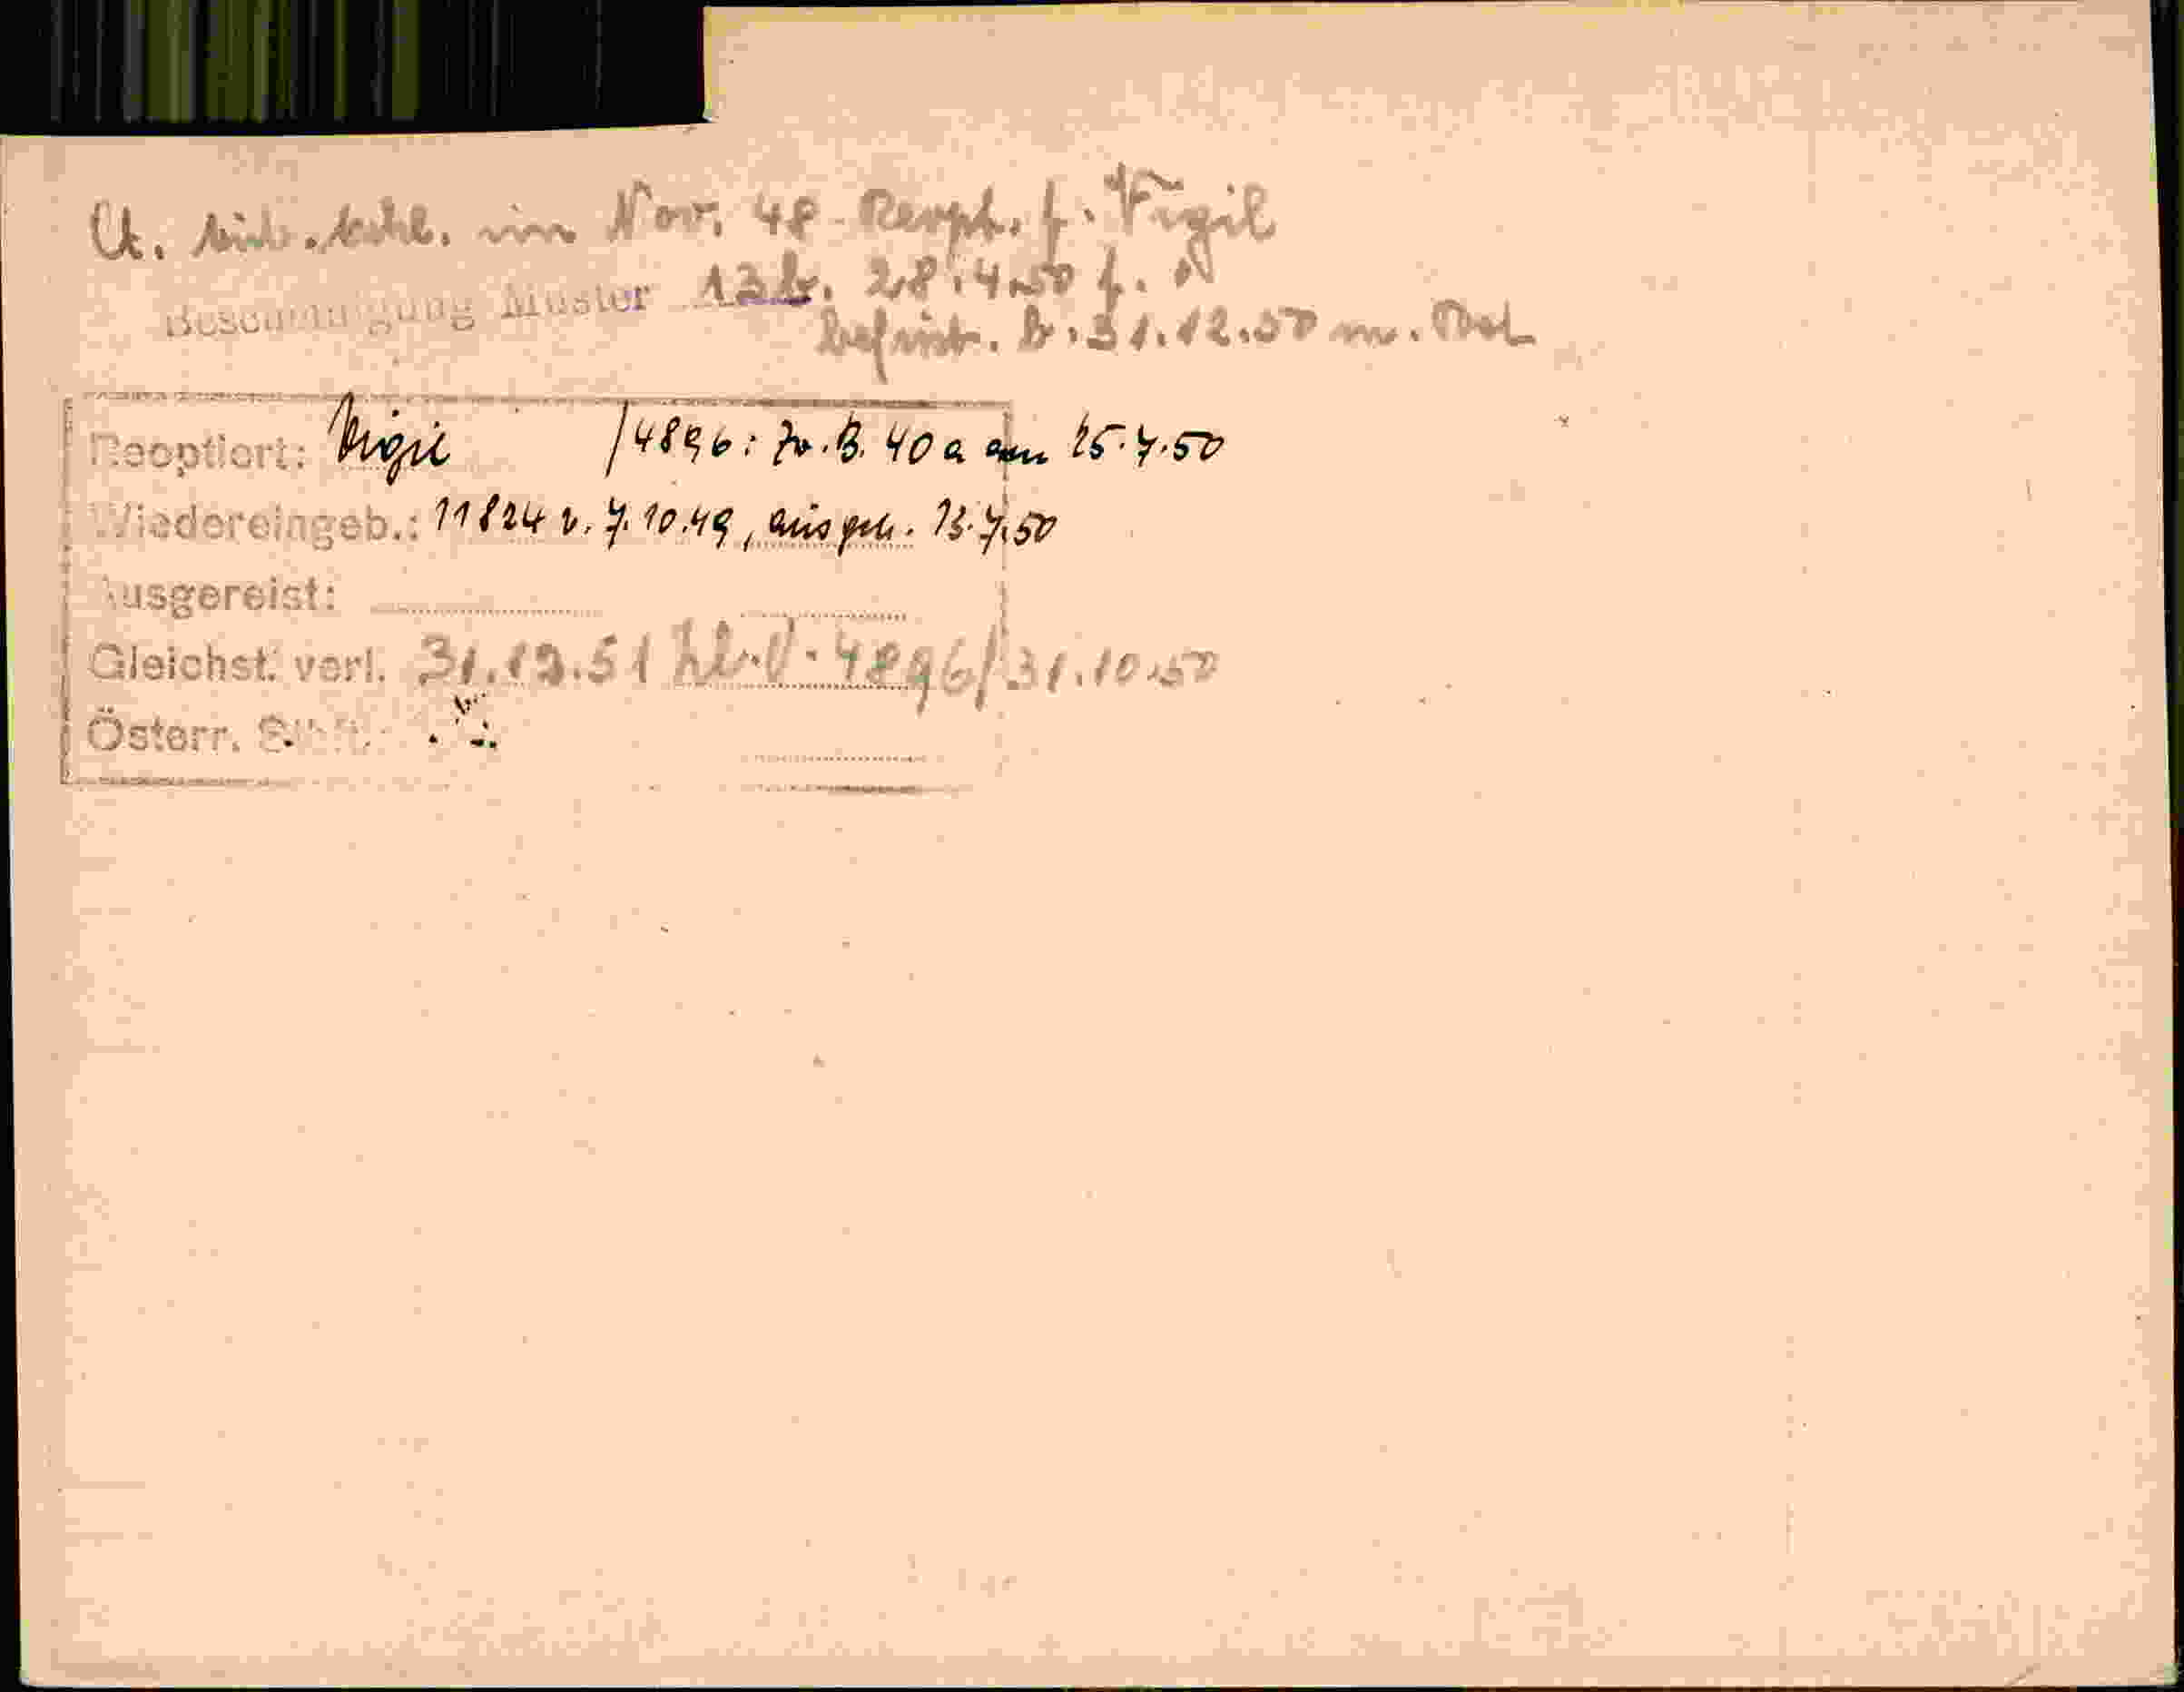 im Nov. 48 f. Vigil
Bescheinigung Muster 13 b. 28.4.50 f.
befrist. b. 31.12.50 m.
Reoptiert: Vigil /4896: Zw.B. 40 a am 25.7.50
Wiedereingeb.: 11824 v. 7.10.49, ausgeh. 13.7.50
Ausgereist:
Gleichst. verl. 31.12.51 4896/31.10.50
Österr.